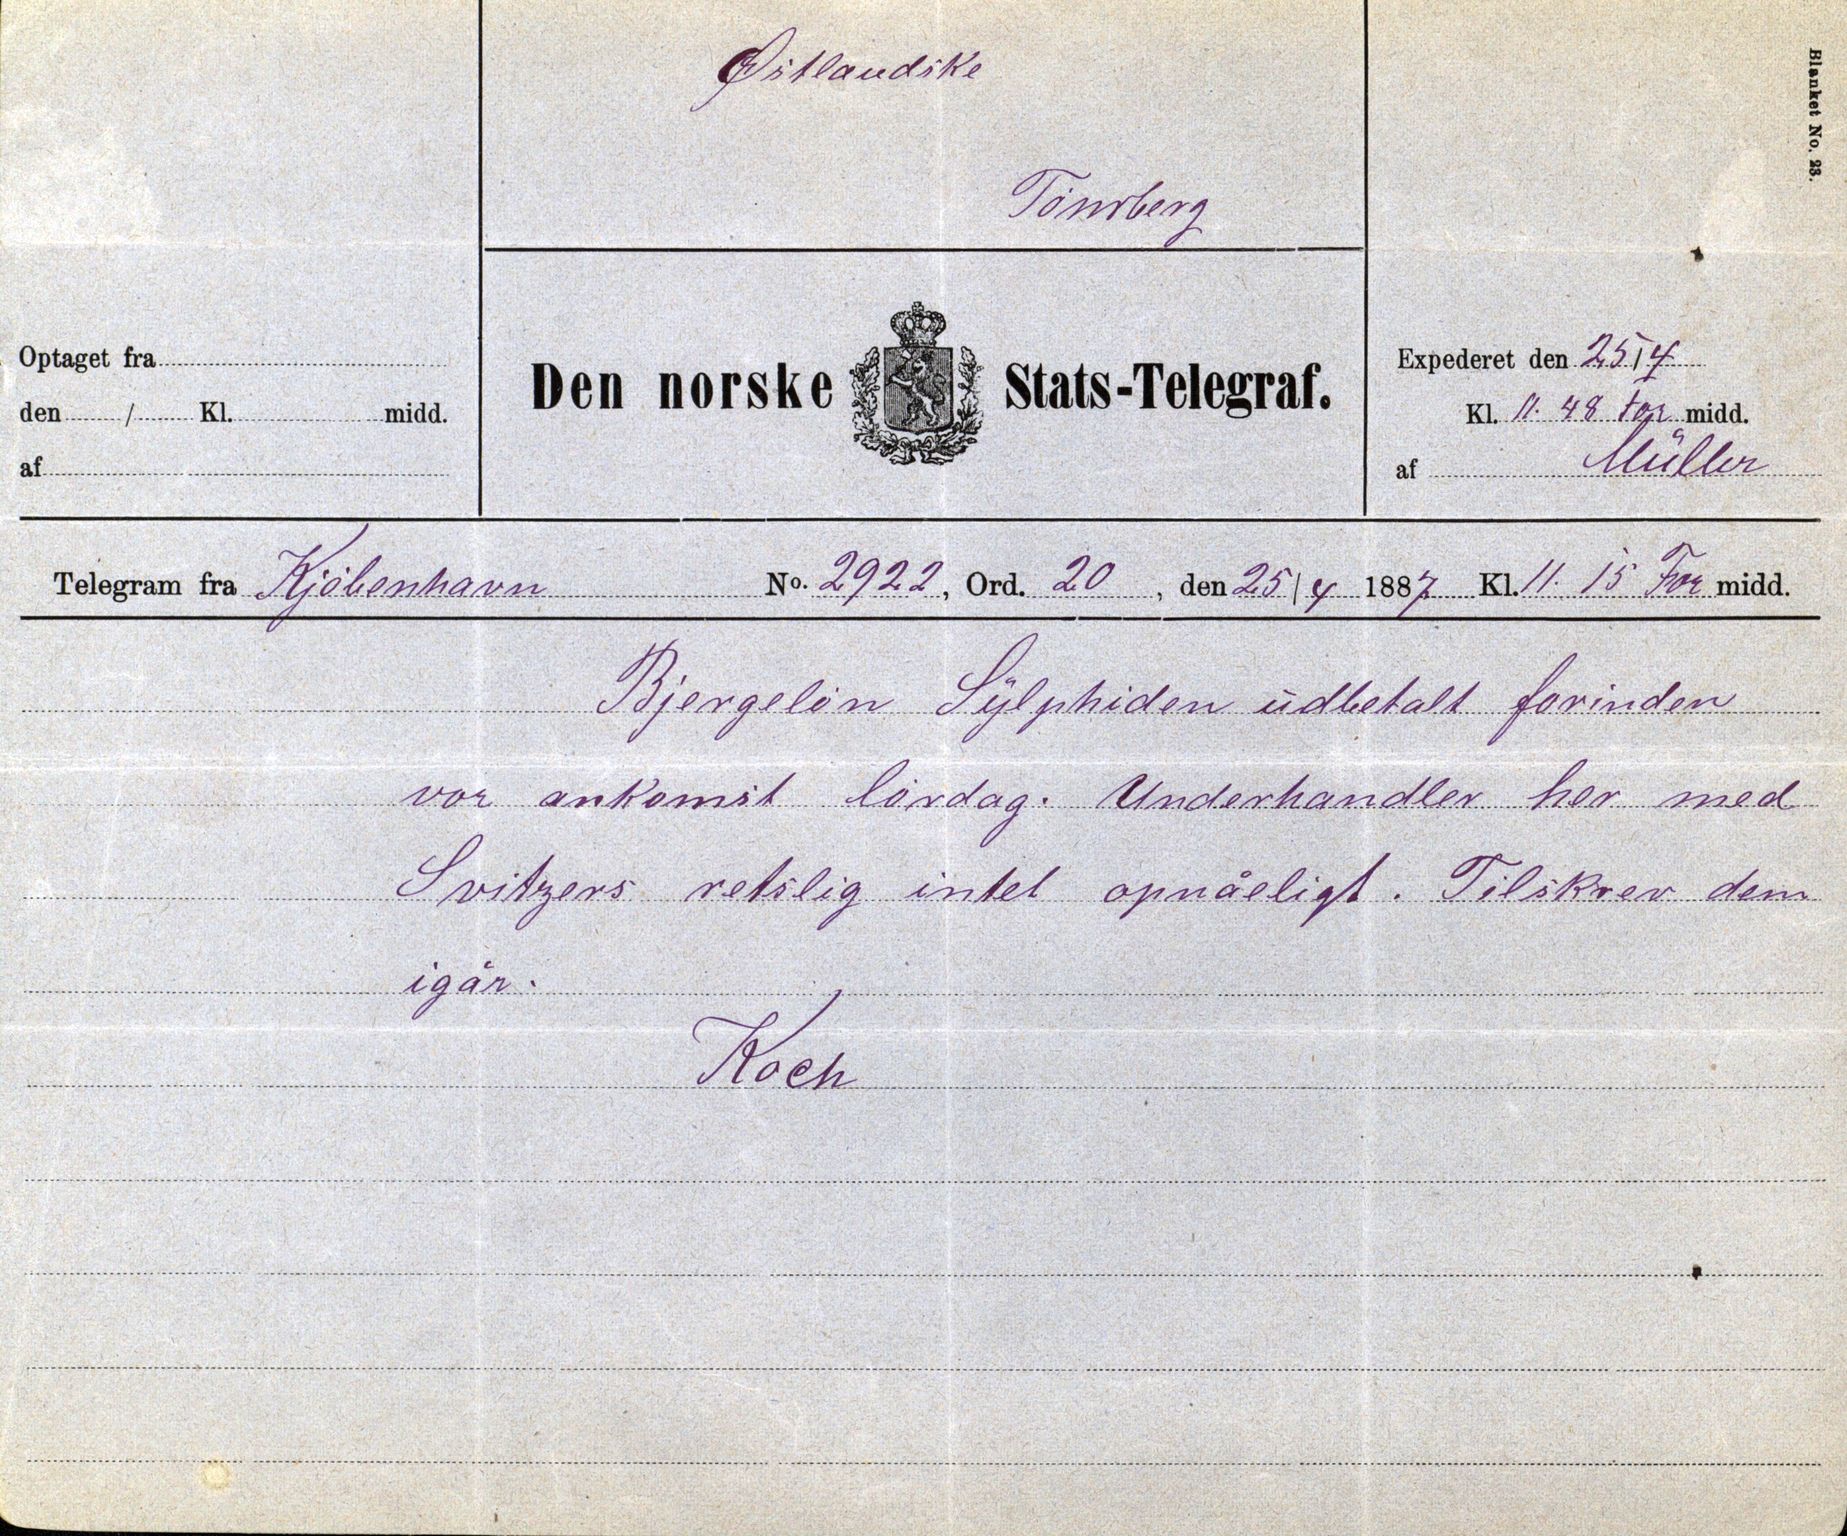 Blanket No. 23.
Østlandske
Tönsberg
Optaget fra
den / Kl. midd.
af
Den norske Stats-Telegraf.
Expederet den 25/4
Kl. 11. 48 For midd.
af Müller
Telegram fra Kjöbenhavn No. 2922, Ord. 20, den 25/4 1887 Kl. 11. 15 For midd.
Bjergelön Sylphiden udbetalt forinden
vor ankomst lördag. Underhandler her med
Svitzers retslig intet opnåeligt. Tilskrev dem
igår.
Koch